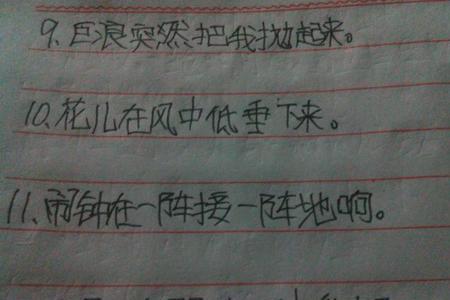 9、巨浪突然把我抛起来。
10、花儿在风中低垂下来。
11、闹钟在一阵接一阵地响。